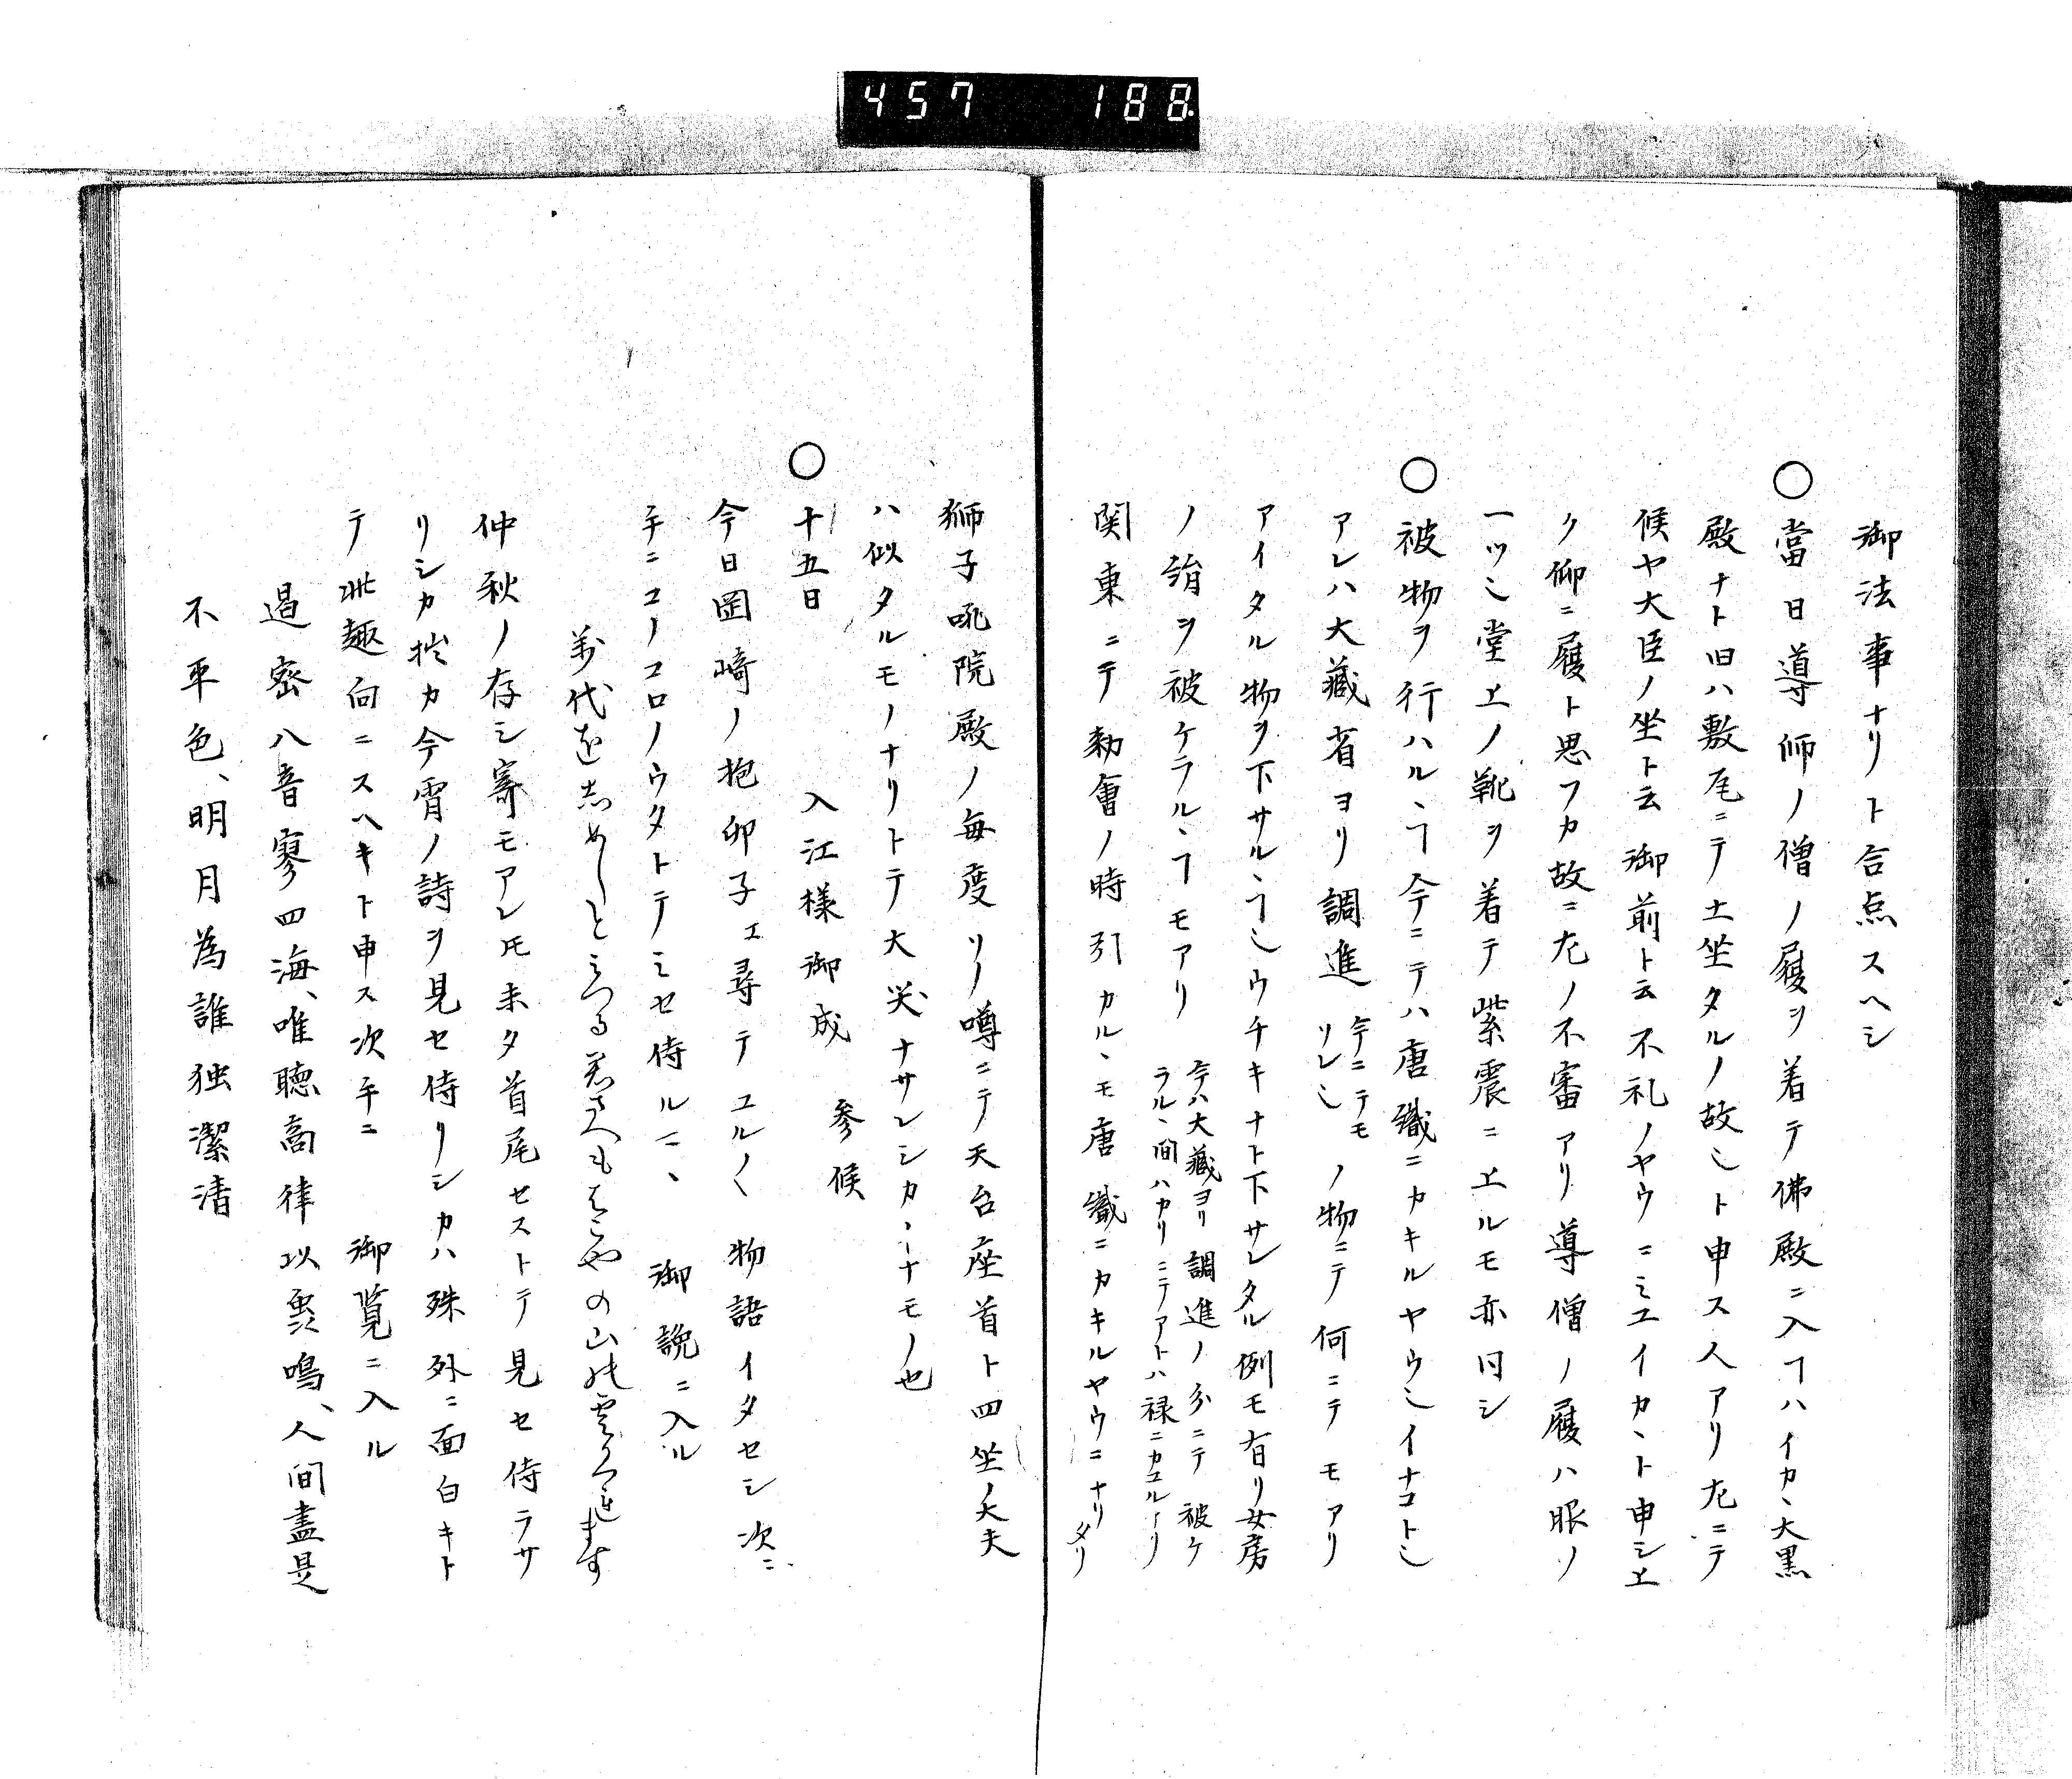 457 188.
御法事ナリト合点スヘシ
○當日導師ノ僧ノ履ヲ着テ佛殿ニ入ヿハイカヽ大黒
殿ナト旧ハ敷瓦ニテ土坐タルノ故ミト申ス人アリ尤ニテ
候ヤ大臣ノ坐ト云御前ト云不礼ノヤウニミユイカヽト申シ上
ク仰ニ履ト思フカ故ニ尤ノ不審アリ導僧ノ履ハ眼ノ
一ツミ堂上ノ靴ヲ着テ紫震ニ上ルモ亦同シ
○被物ヲ行ハルヽヿ今ニテハ唐織ニカキルヤウミイナコトミ
アレハ大藏省ヨリ調進 今ニテモ
ソレミ ノ物ニテ何ニテモアリ
アイタル物ヲ下サルヽヿミウチキナト下サレタル例モ有リ女房
ノ絹ヲ被ケラルヽヿモアリ 今ハ大藏ヨリ調進ノ分ニテ被ケ
ラルヽ間ハカリニテアトハ禄ニカユルナリ
関東ニテ勅會ノ時引カルヽモ唐織ニカキルヤウニナリタリ
獅子吼院殿ノ毎度ソノ噂ニテ天台座首ト四坐ノ大夫
ハ似タルモノナリトテ大笑ナサレシカヽヽナモノ也
○十五日 入江様御成 参候
今日岡崎ノ抱卵子エ尋テユル〱物語イタセシ次ニ
手ニコノコロノウタトテミセ侍ルニ、御説ニ入ル
萬代を志めしとみつる若さへもはこやの山の雲かつ進ます
仲秋ノ存シ寄モアレ𪜈未タ首尾セストテ見セ侍ラサ
リシカ拙カ今宵ノ詩ヲ見セ侍リシカハ殊外ニ面白キト
テ此趣向ニスヘキト申ス次手ニ 御覧ニ入ル
遏密八音寥四海、唯聴高律以蛩鳴、人間盡是
不平色、明月為誰独潔清